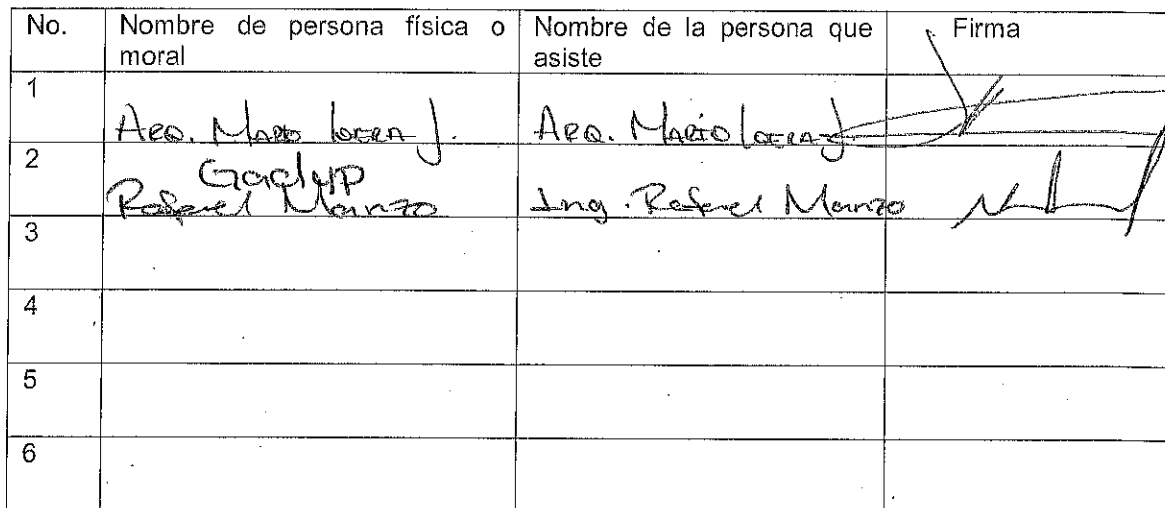 No. Nombre de persona física o moral Nombre de la persona que asiste Firma
1 Arq. Mario Loera J. Arq. Mario Loera J.
2 Gadyp
Rafael Manzo Ing. Rafael Manzo
3
4
5
6